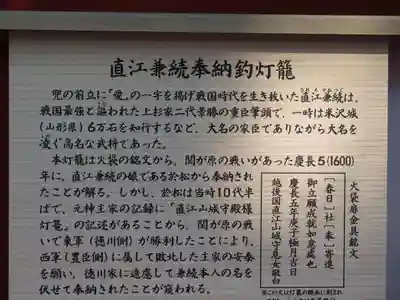 直江兼続奉納釣灯籠
兜の前立に「愛」の一字を掲げ戦国時代を生き抜いた直江兼続は、
戦国最強と謳われた上杉家二代景勝の重臣筆頭で、一時は米沢城
(山形県)6万石を知行するなど、大名の家臣でありながら大名を
凌ぐ高名な武将であった。
本灯籠は火袋の銘文から、関が原の戦いがあった慶長5(1600)
年に、直江兼続の娘である於松から奉納され
たことが解る。しかし、於松は当時10代半
ばで、元神主家の記録に「直江山城守殿様
灯篭」の記述があることから、関が原の戦
いで東軍(徳川側)が勝利したことにより、
西軍(豊臣側)に属して敗北した主家の安泰
を願い、徳川家に遠慮して兼続本人の名を
伏せて奉納されたことが窺われる。
火袋扉金具銘文
「春日」社「奉」寄進
御立願成就如意処也
慶長五年庚子極月吉日
越後国直江山城守息女敬白